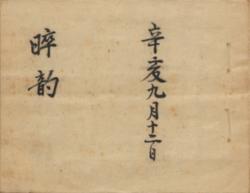 辛亥九月十二日
晬韵